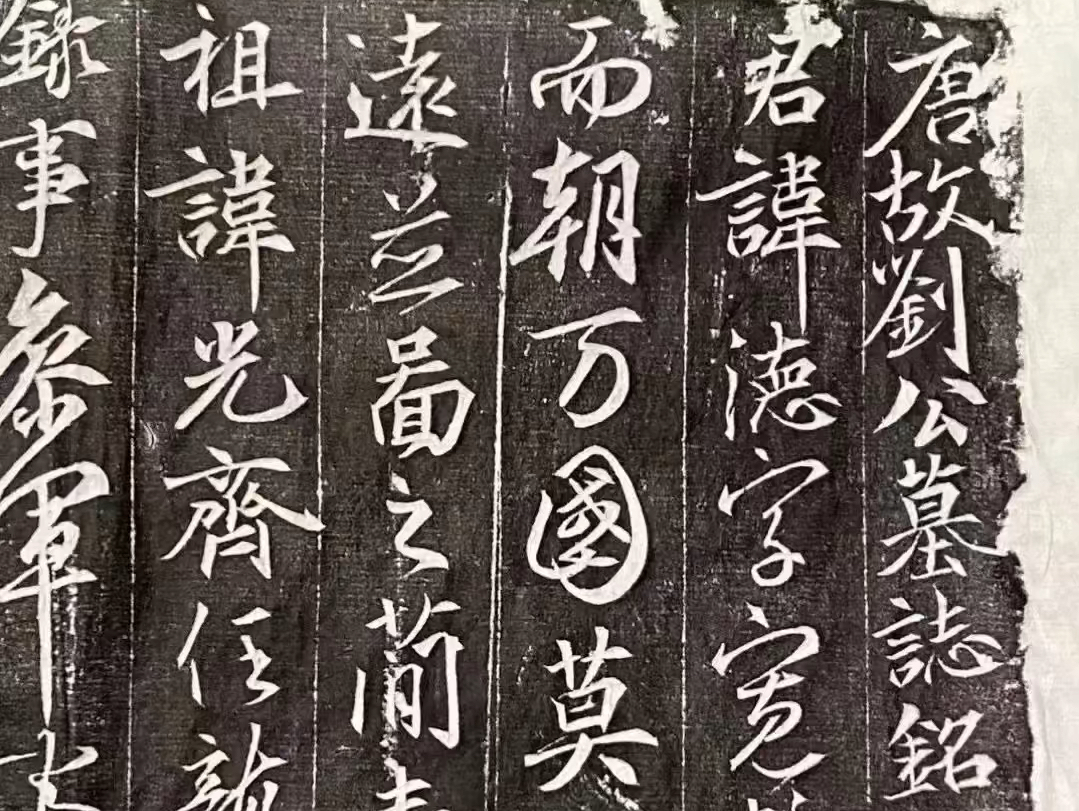 唐故劉公墓誌銘
君諱德字寬
而朝万國莫
遠並啚之簡
祖諱光齊任
錄事叅軍